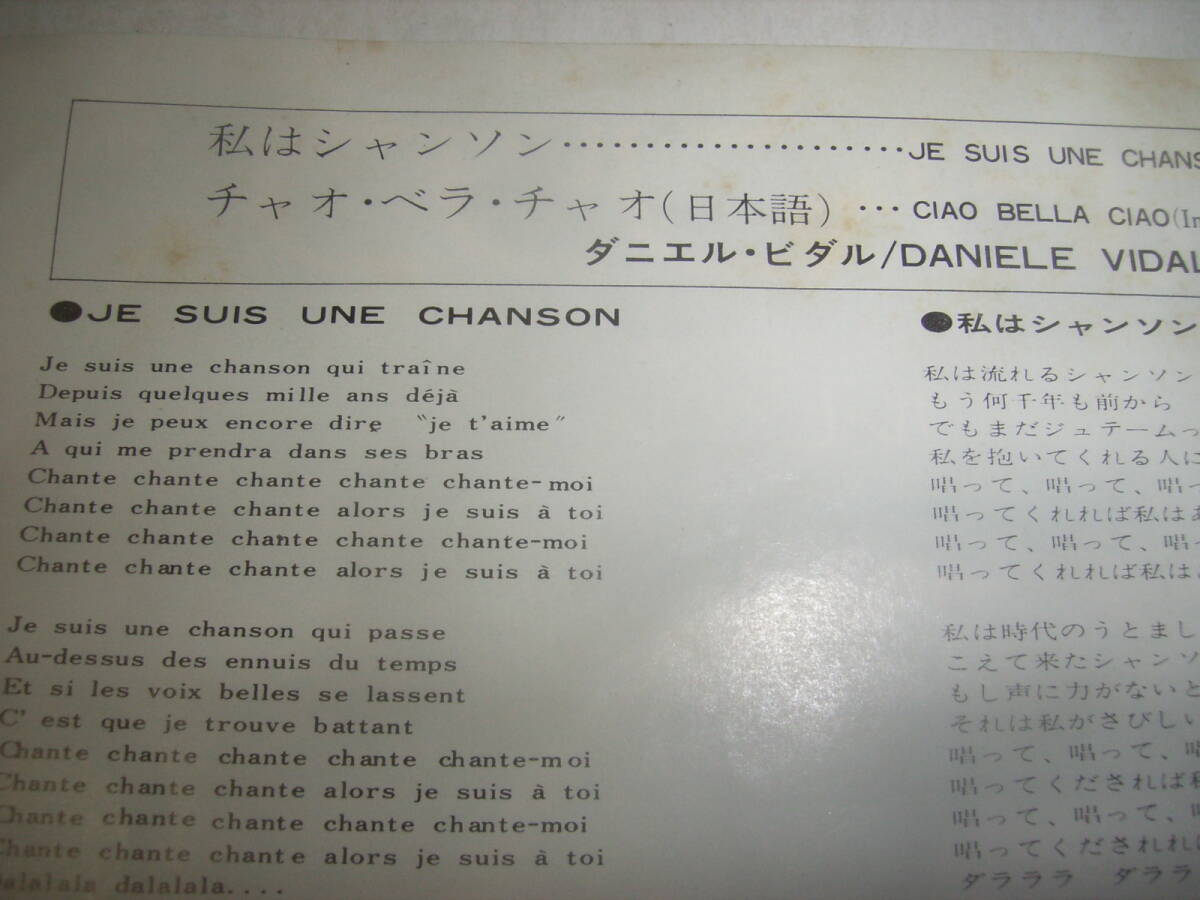 私はシャンソン・・・・・・・・・・・・・・・・・・・・・JE SUIS UNE CHANS
チャオ・ベラ・チャオ(日本語)・・・CIAO BELLA CIAO(In
ダニエル・ビダル/DANIELE VIDAL
●JE SUIS UNE CHANSON
Je suis une chanson qui traîne
Depuis quelques mille ans déjà
Mais je peux encore dire "je t'aime"
A qui me prendra dans ses bras
Chante chante chante chante chante-moi
Chante chante chante alors je suis à toi
Chante chante chante chante chante-moi
Chante chante chante alors je suis à toi
Je suis une chanson qui passe
Au-dessus des ennuis du temps
Et si les voix belles se lassent
C' est que je trouve battant
Chante chante chante chante chante-moi
Chante chante chante alors je suis à toi
Chante chante chante chante chante-moi
Chante chante chante alors je suis à toi
Dalalala dalalala....
●私はシャンソン
私は流れるシャンソン
もう何千年も前から
でもまだジュテームっ
私を抱いてくれる人に
唱って、唱って、唱っ
唱ってくれれば私はあ
唱って、唱って、唱っ
唱ってくれれば私はあ
私は時代のうとまし
こえて来たシャンソ
もし声に力がないと
それは私がさびしい
唱って、唱って、唱
唱ってくだされば私
唱って、唱って、唱
唱ってくだされれば
ダラララ ダララ